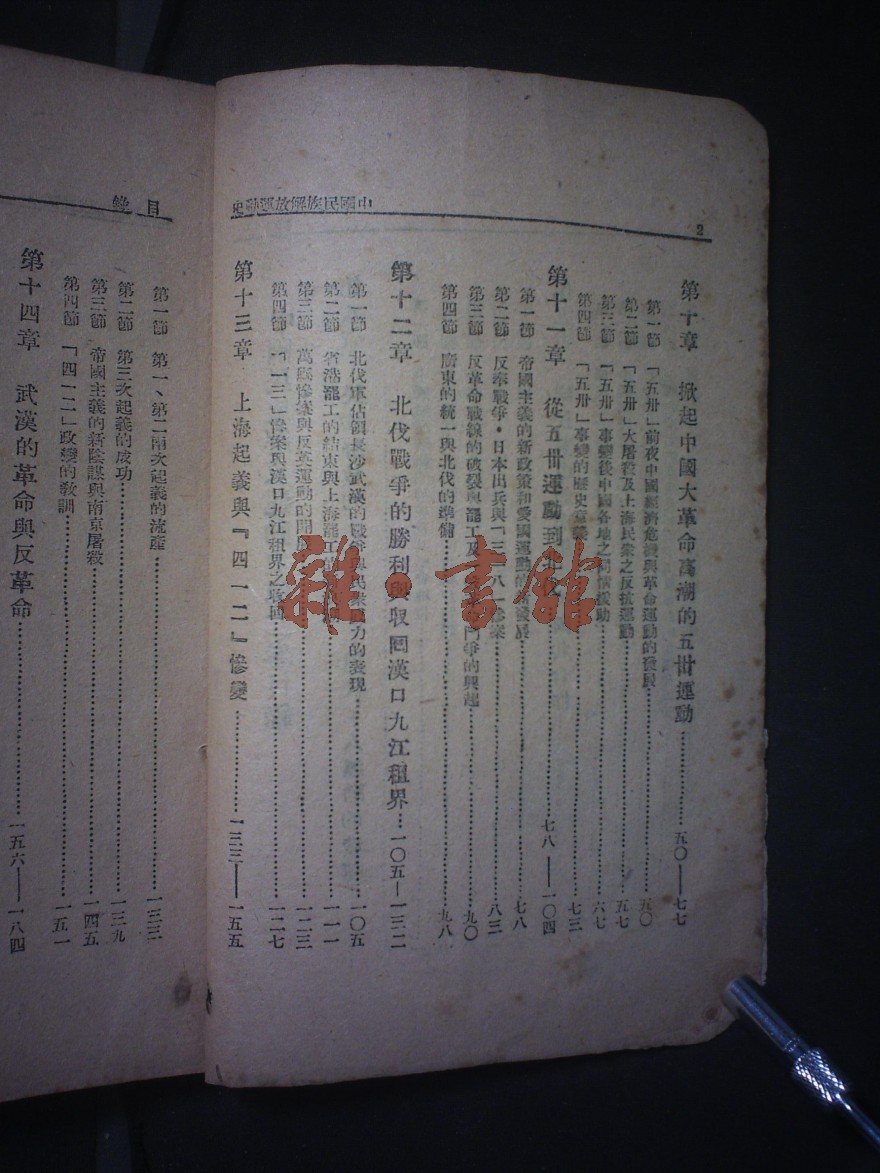 2
中國民族解放運動史
第十章 掀起中國大革命高潮的五卅運動 五〇——七七
第一節 「五卅」前夜中國經濟危機與革命運動的發展 五〇
第二節 「五卅」大屠殺及上海民衆之反抗運動 五七
第三節 「五卅」事變後中國各地之同情援助 六七
第四節 「五卅」事變的歷史 七三
第十一章 從五卅運動到北伐 七八——一〇四
第一節 帝國主義的新政策和愛國運動的 發展 七八
第二節 反奉戰爭・日本出兵與「三・一八」慘案 八三
第三節 反革命戰線的破裂與罷工 鬥爭的興起 九〇
第四節 廣東的統一與北伐的準備 九八
第十二章 北伐戰爭的勝利與收回漢口九江租界 一〇五——一三二
第一節 北伐軍佔領長沙武漢的戰爭與民衆 力的表現 一〇五
第二節 省港罷工的結束與上海罷工 一一一
第三節 萬縣慘案與反英運動的開展 一二三
第四節 「一三」慘案與漢口九江租界之收回 一二七
第十三章 上海起義與『四一二』慘變 一三三——一五五
目錄
第一節 第一、第二兩次起義的流產 一三三
第二節 第三次起義的成功 一三九
第三節 帝國主義的新陰謀與南京屠殺 一四五
第四節 「四一二」政變的教訓 一五一
第十四章 武漢的革命與反革命 一五六——一八四
雜・書館